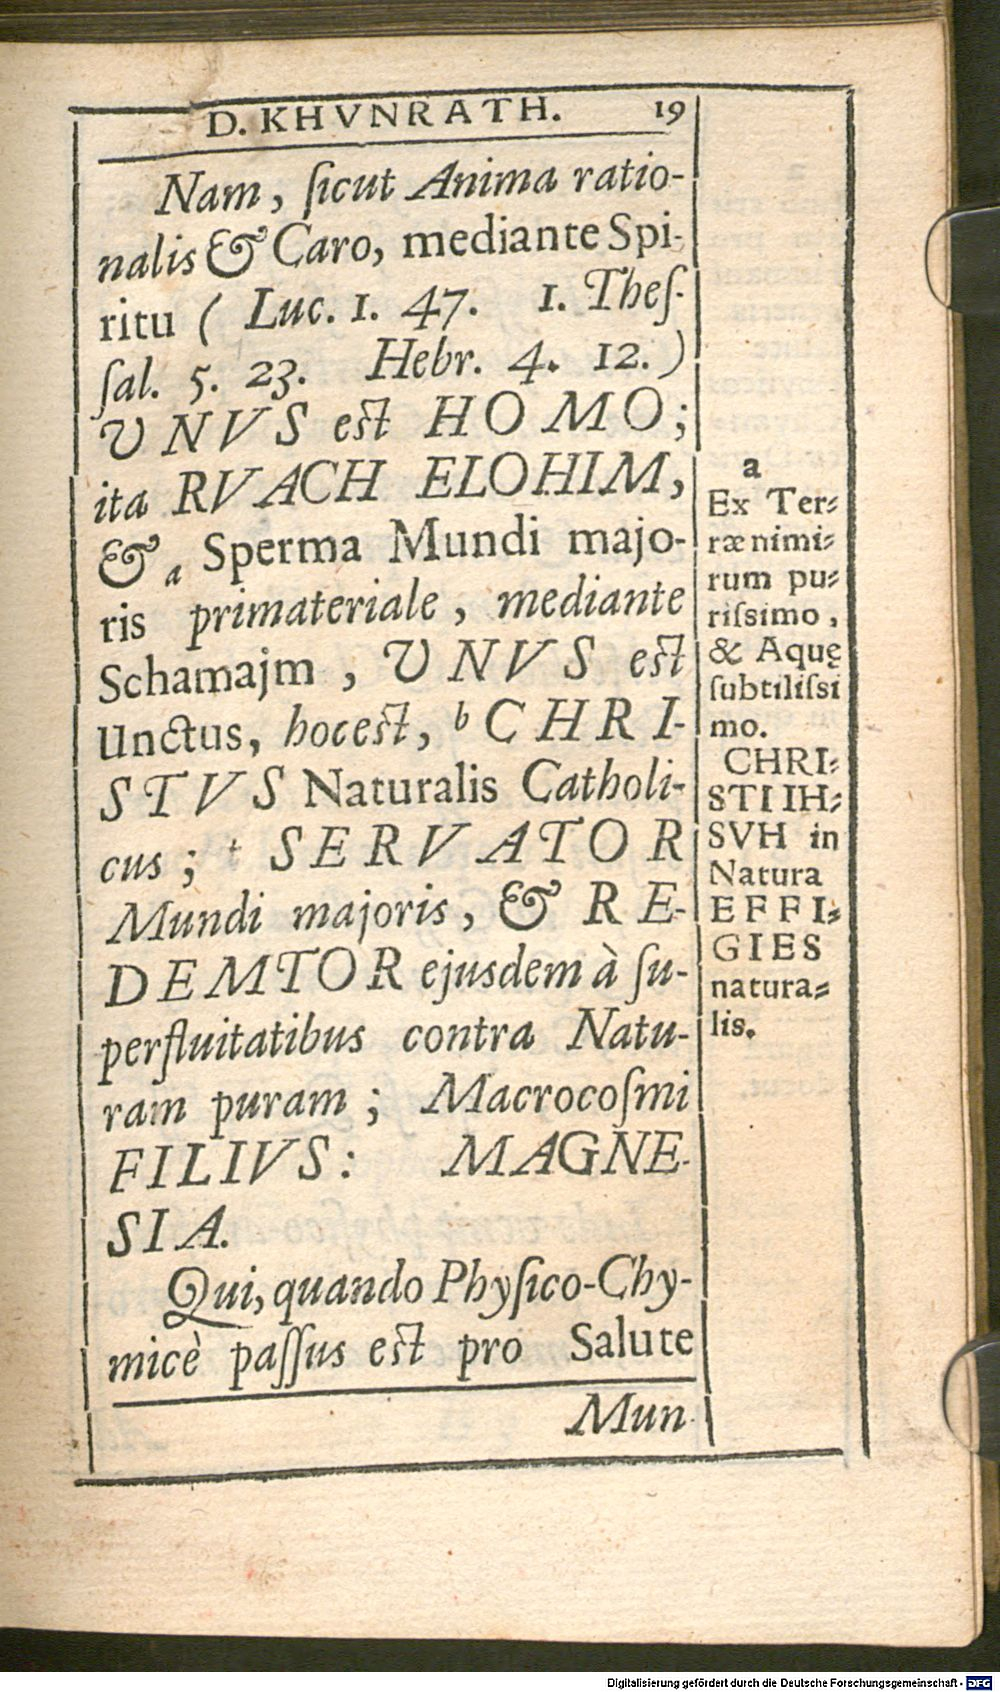 D. KHVNRATH. 19
Nam, ſicut Anima ratio-
nalis & Caro, mediante Spi-
ritu ( Luc. 1. 47. 1. Theſ-
ſal. 5. 23. Hebr. 4. 12. )
UNVS est HOMO;
ita RVACH ELOHIM,
& a Sperma Mundi majo-
ris primateriale, mediante
Schamajm, UNVS est
Unctus, hoc est, b CHRI-
STVS Naturalis Catholi-
cus; SERVATOR
Mundi majoris, & RE-
DEMTOR ejusdem à ſu-
perfluitatibus contra Natu-
ram puram; Macrocoſmi
FILIVS: MAGNE-
SIA.
Qui, quando Phyſico-Chy-
micè paſſus est pro Salute
Mun-
a
Ex Ter-
ræ nimi-
rum pu-
riſsimo,
& Aquę
ſubtiliſsi
mo.
CHRI-
STI IH-
SVH in
Natura
EFFI-
GIES
natura-
lis.
Digitalisierung gefördert durch die Deutsche Forschungsgemeinschaft - DFG